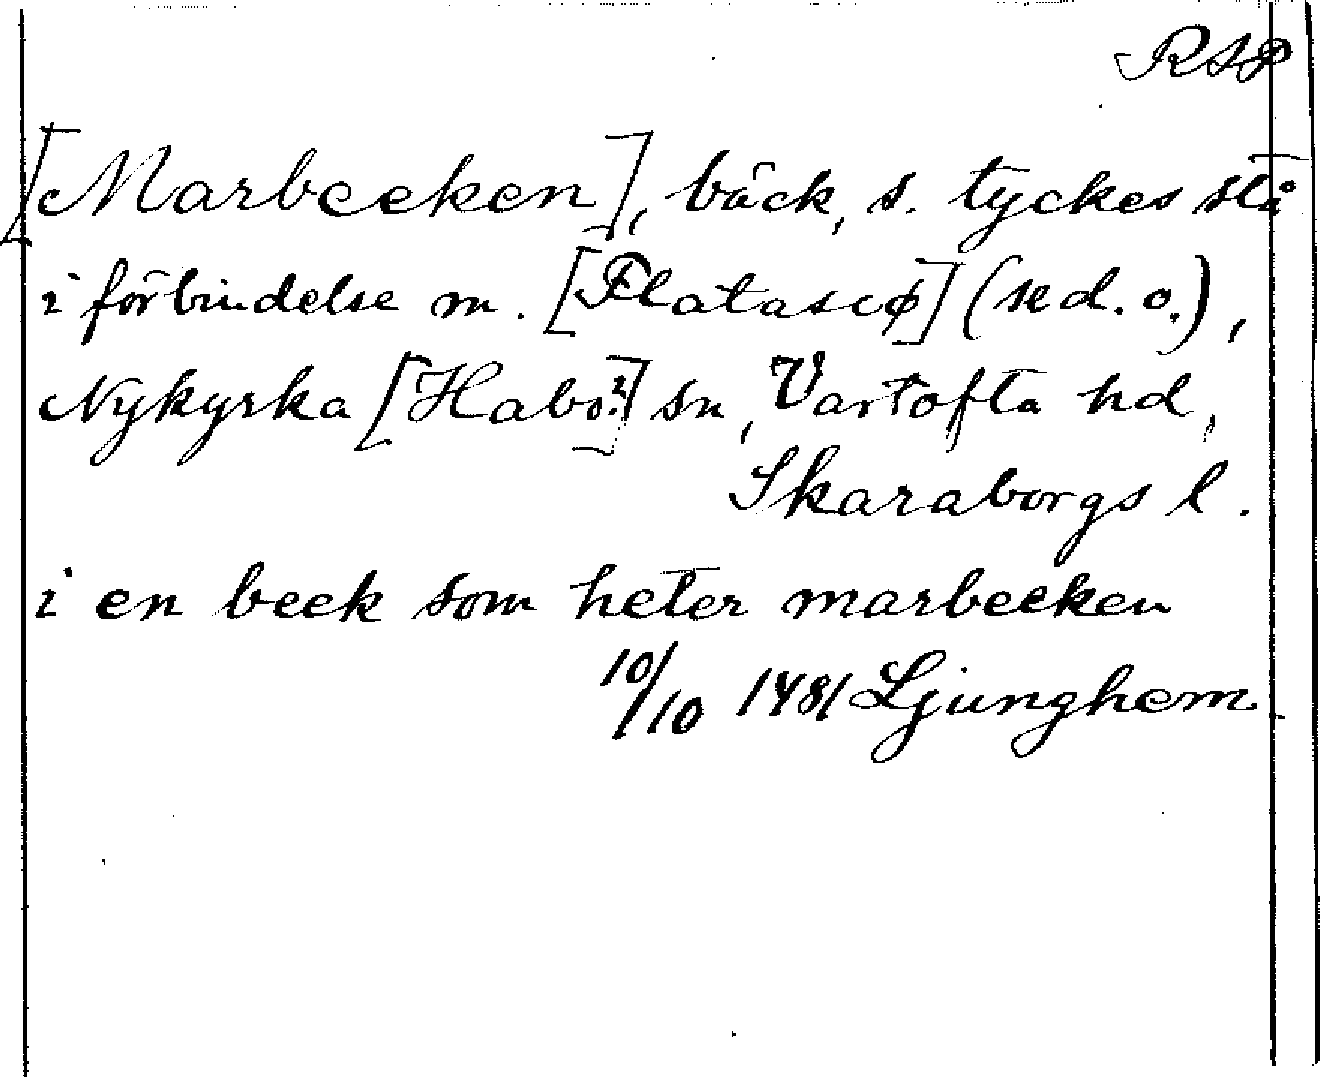 RAP
[Marbeeken], bäck, s. tyckes stå
i förbindelse m. [Flatascø] (se d. o.),
Nykyrka [Habo?] sn, Vartofta hd,
Skaraborgs l.
i en beek som heter marbeeken
10/10 1481 Ljunghem